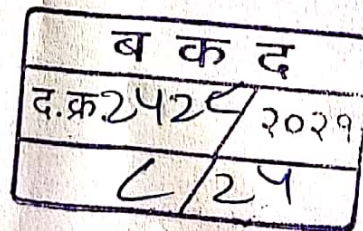 ब क द
द.क्र.२५२८/२०२१
८/२५